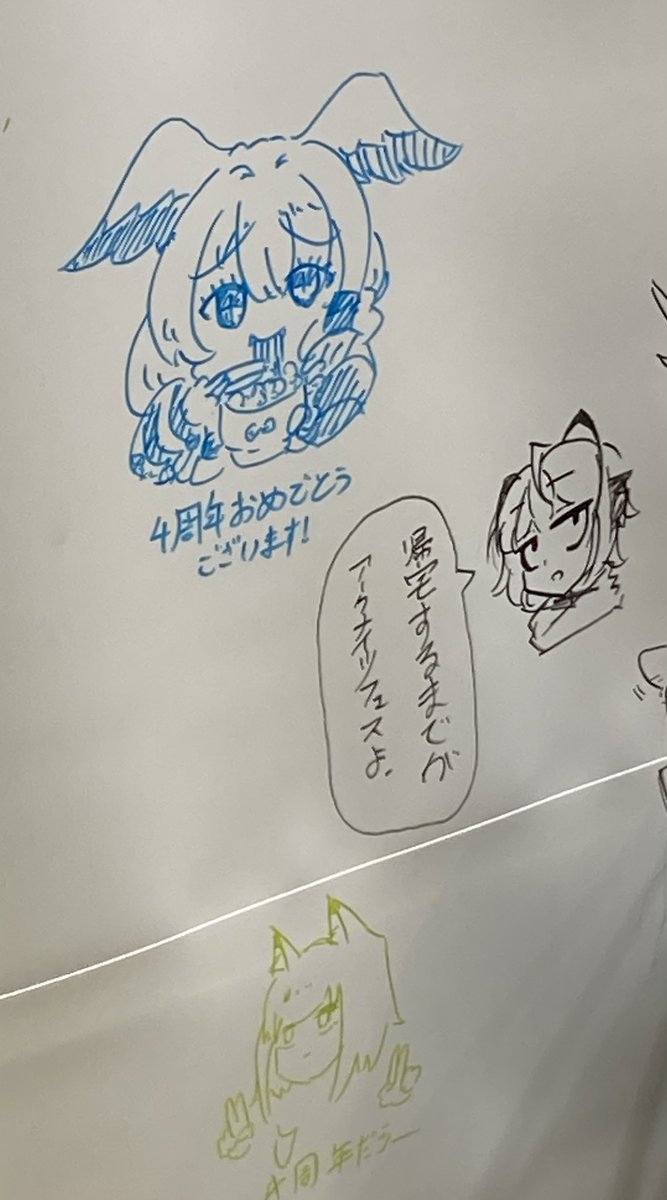 4周年おめでとう
ございます!
帰宅するまでが
アークナイツフェスよ.
4周年だらー